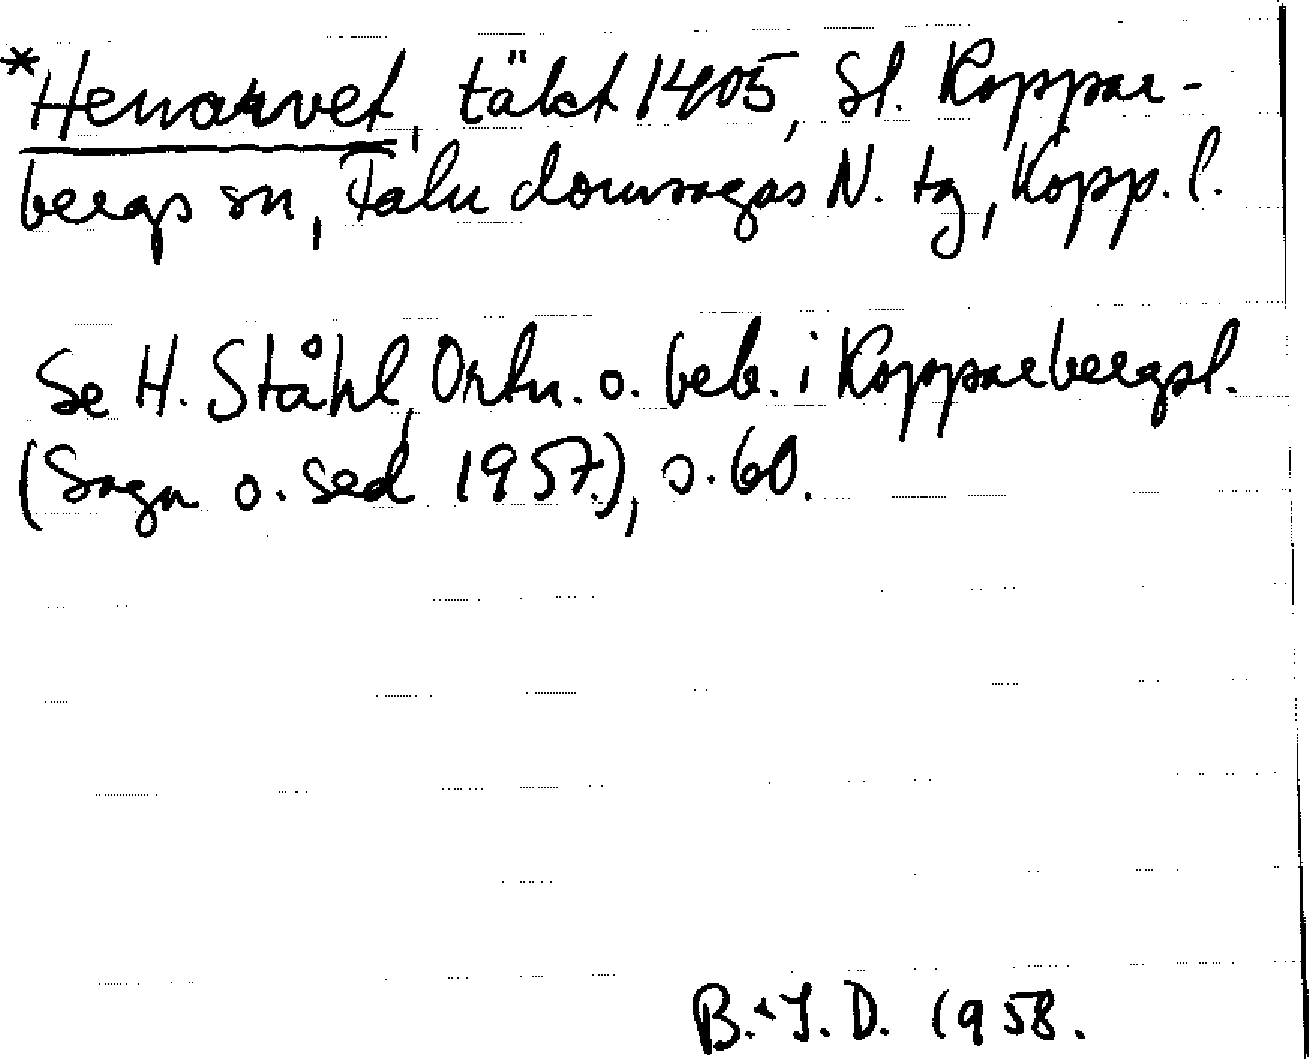 *Henarvet, täkt 1405, St. Koppar-
bergs sn, Falu domsagas N. tg, Kopp. l.
Se H. Ståhl, Ortn. o. beb. i Kopparbergsl.
(Saga o. sed 1957), s. 60.
B.-I.D. 1958.